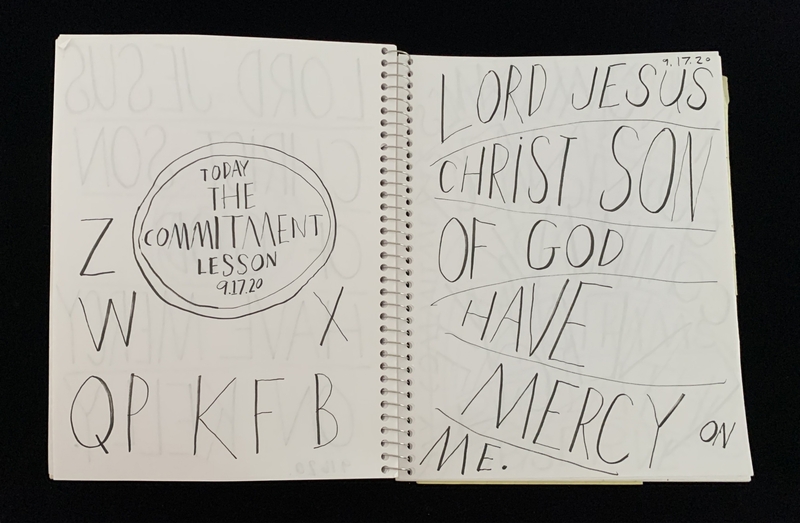 TODAY
THE
COMMITMENT
LESSON
9.17.20
Z
W X
QP K F B
9.17.20
LORD JESUS
CHRiST SON
OF GOD
HAVE
MERCY ON
ME.